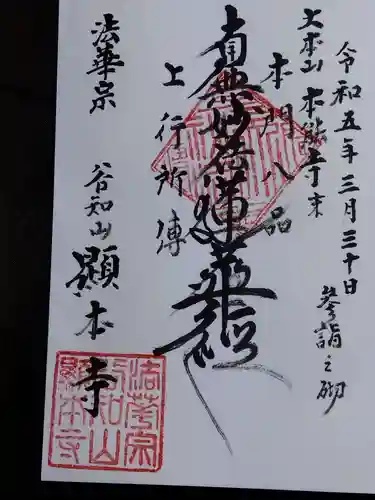 令和五年三月三十日
參詣之砌
大本山 本能寺末
本門八品
南無妙法蓮華経
上行所傳
法華宗 谷知山 顯本寺
法華宗
谷知山
顯本寺